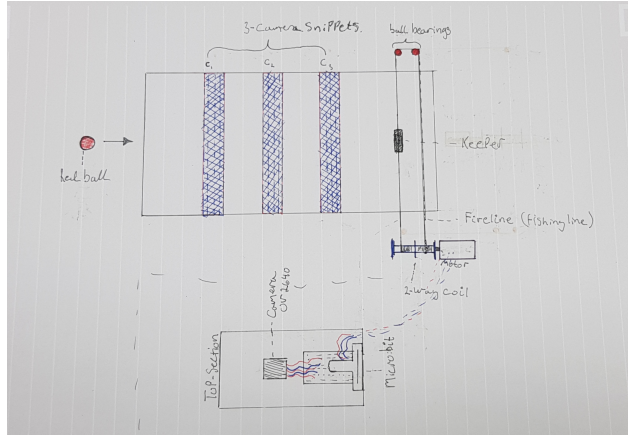 3-Camera Snippets.
ball bearings
C₁ C₂ C₃
Keeper
Red ball
Fireline (Fishing line)
Motor
2-way coil
Camera
OV2640
TOP-Section
Microbit